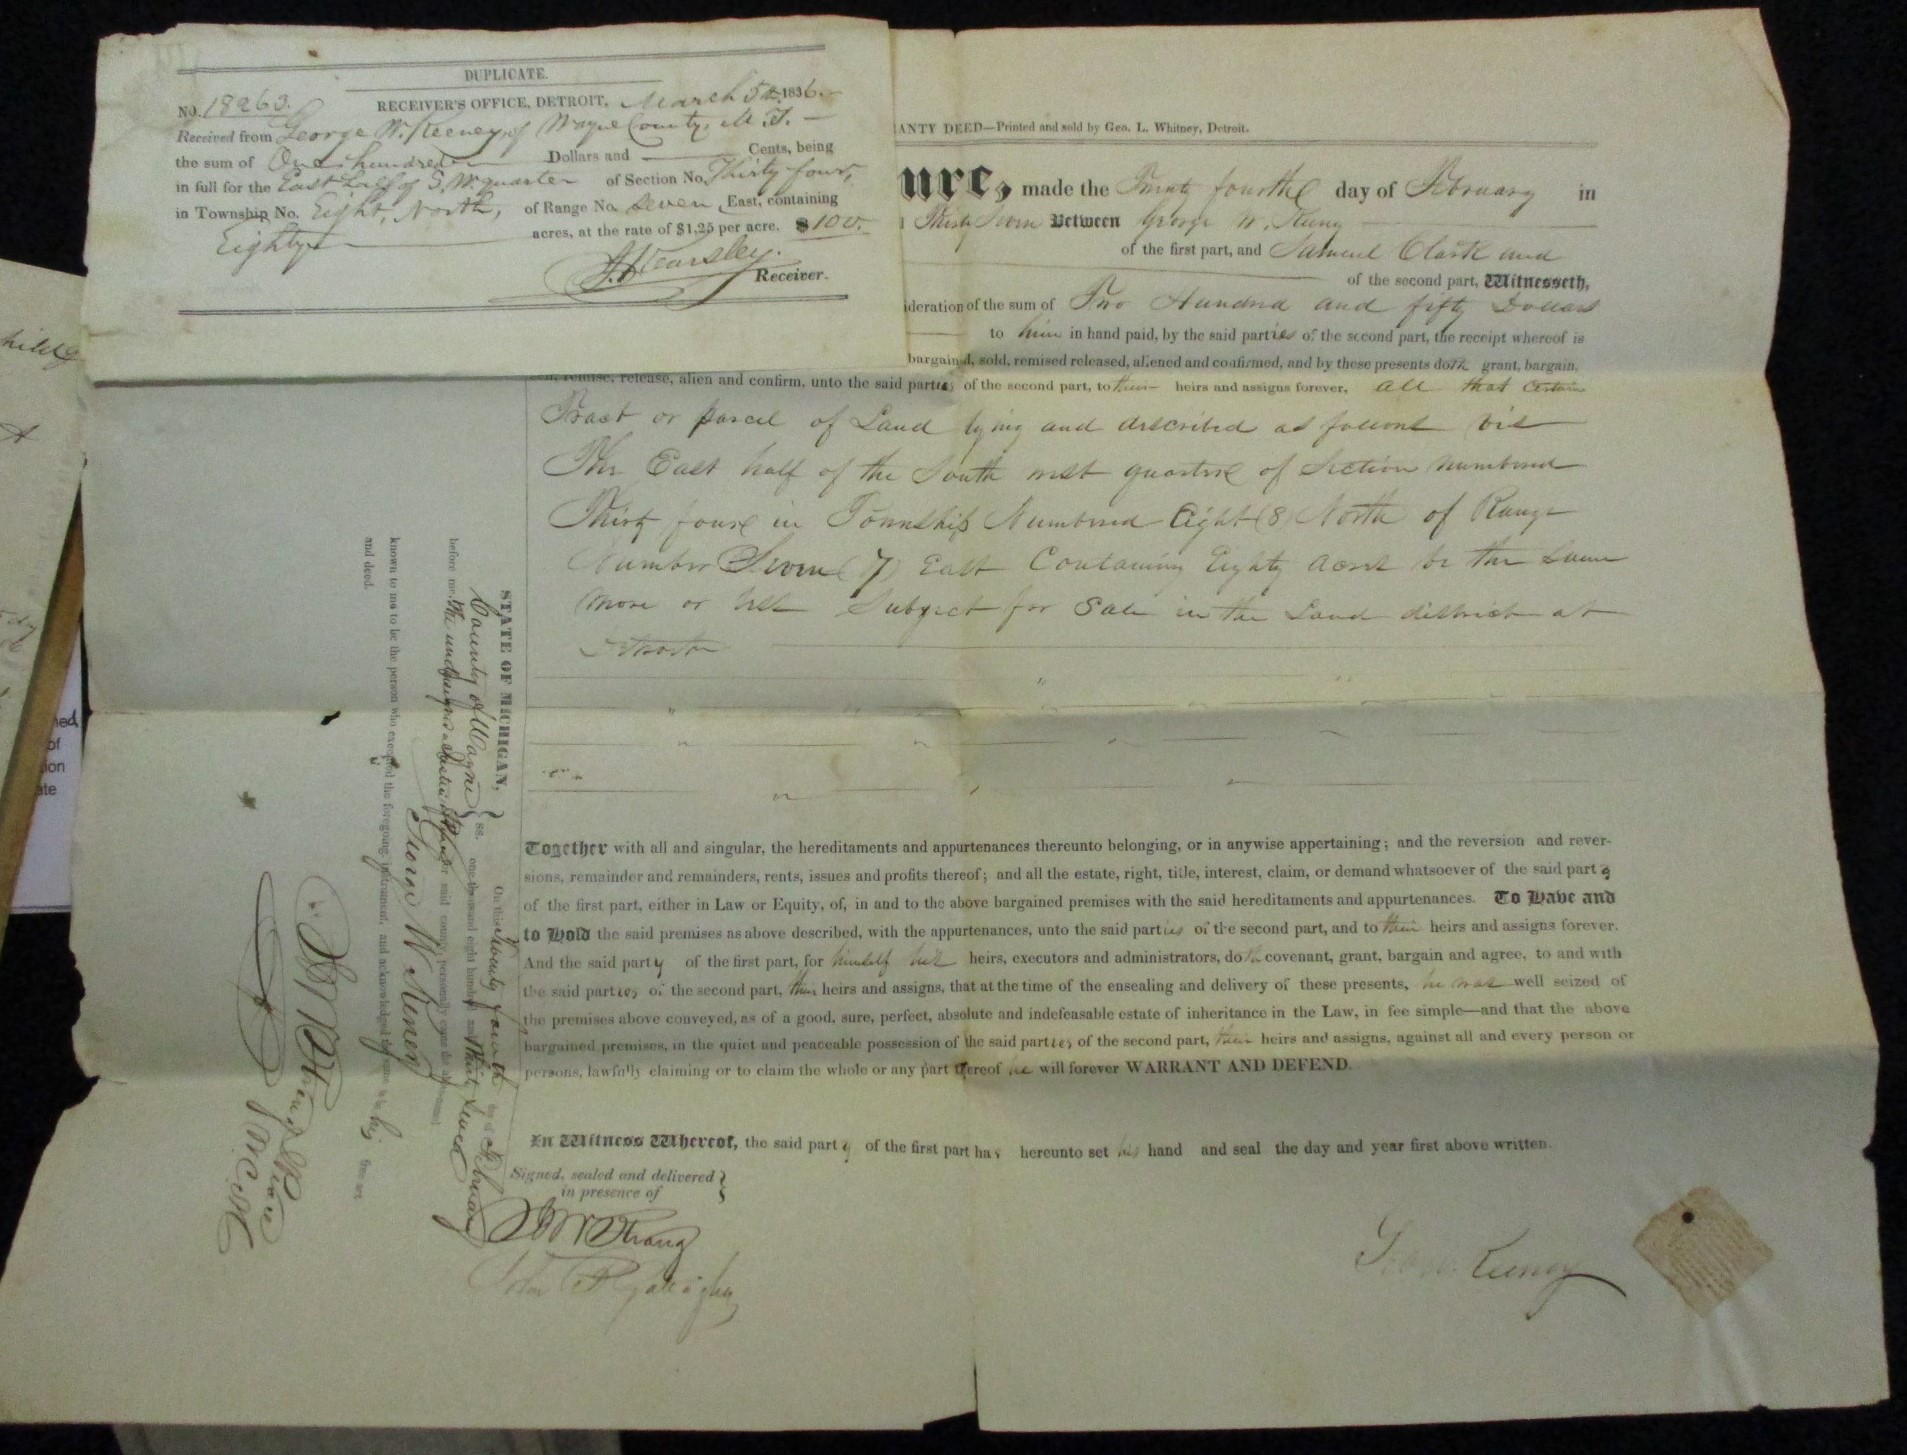 DUPLICATE.
NO. 18263. RECEIVER'S OFFICE, DETROIT, March 5th 1836.
Received from George W. Keeney, of Wayne County, M. T.
the sum of One hundred Dollars and Cents, being
in full for the East half of S. W. quarter of Section No. Thirty four,
in Township No. Eight, North, of Range No. Seven East, containing
Eighty acres, at the rate of $1,25 per acre. $100.
J. Kearsley.
Receiver.
ANTY DEED—Printed and sold by Geo. L. Whitney, Detroit.
ure, made the Twenty fourth day of February in
Thirty Seven Between George W. Keeney
of the first part, and Samuel Clark and
of the second part, Witnesseth,
ideration of the sum of Two Hundred and fifty Dollars
to him in hand paid, by the said parties of the second part, the receipt whereof is
bargained, sold, remised released, aliened and confirmed, and by these presents doth grant, bargain,
remise, release, alien and confirm, unto the said parties of the second part, to their heirs and assigns forever, all that certain
Tract or parcel of Land lying and described as follows viz
The East half of the South west quarter of Section numbered
Thirty four in Township Numbered Eight (8) North of Range
Number Seven (7) East Containing Eighty acres be the same
more or less Subject for Sale in the Land district at
Detroit
Together with all and singular, the hereditaments and appurtenances thereunto belonging, or in anywise appertaining; and the reversion and rever-
sions, remainder and remainders, rents, issues and profits thereof; and all the estate, right, title, interest, claim, or demand whatsoever of the said party
of the first part, either in Law or Equity, of, in and to the above bargained premises with the said hereditaments and appurtenances. To Have and
to Hold the said premises as above described, with the appurtenances, unto the said parties of the second part, and to their heirs and assigns forever.
And the said party of the first part, for himself his heirs, executors and administrators, doth covenant, grant, bargain and agree, to and with
the said parties of the second part, their heirs and assigns, that at the time of the ensealing and delivery of these presents, he was well seized of
the premises above conveyed, as of a good, sure, perfect, absolute and indefeasable estate of inheritance in the Law, in fee simple—and that the above
bargained premises, in the quiet and peaceable possession of the said parties of the second part, their heirs and assigns, against all and every person or
persons, lawfully claiming or to claim the whole or any part thereof he will forever WARRANT AND DEFEND.
In Witness Whereof, the said party of the first part has hereunto set his hand and seal the day and year first above written.
Signed, sealed and delivered
in presence of
Strang
John
Geo W. Keeney
STATE OF MICHIGAN,
County of Wayne ss. On this Twenty fourth day of February
one thousand eight hundred and Thirty Seven
before me, the undersigned a Justice of Peace for said county, personally came
George W Keeney
known to me to be the person who executed the foregoing instrument, and acknowledged the same to be his free act
and deed.